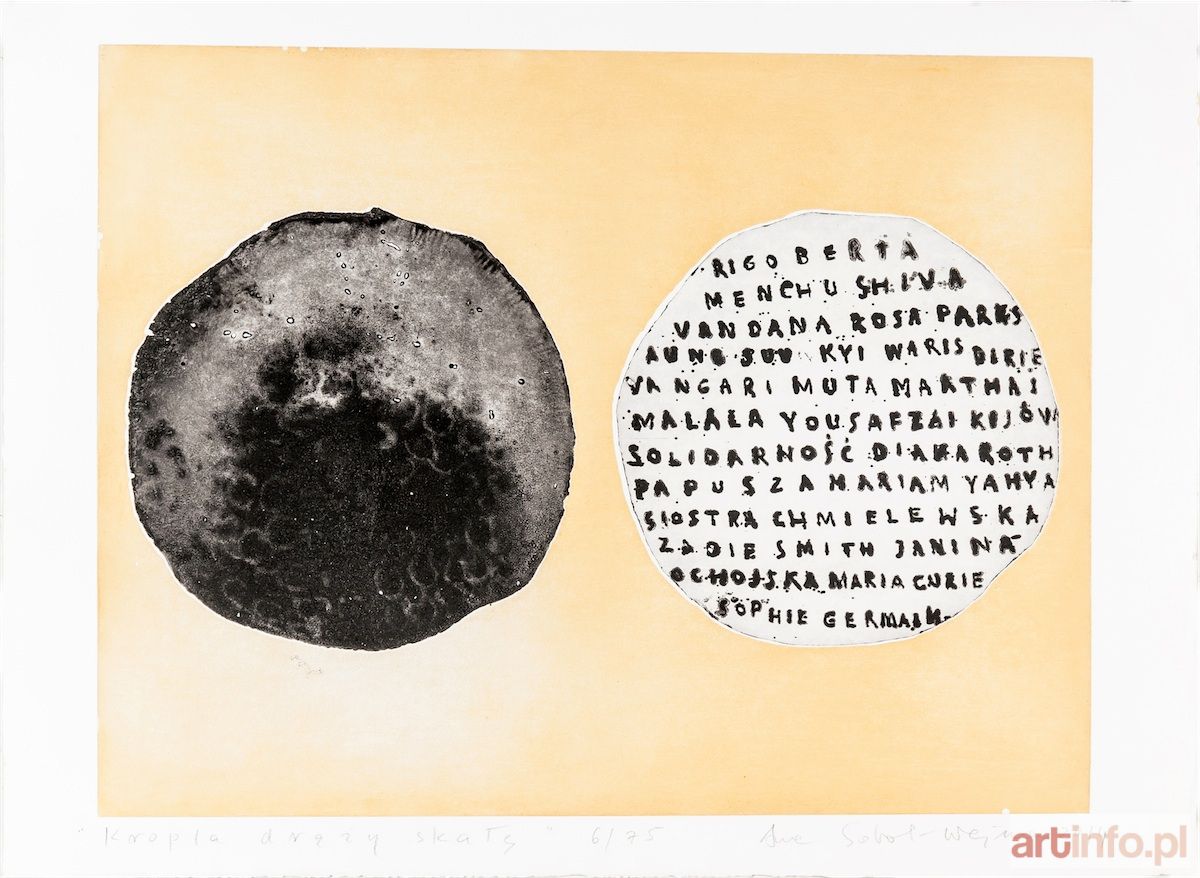 RIGOBERTA
MENCHU SHIVA
VANDANA ROSA PARKS
AUNG SUU KYI WARIS DIRIE
VANGARI MUTA MARTHAI
MALALA YOUSAFZAI KIJÓW
SOLIDARNOŚĆ DIANA ROTH
PAPUSZA MARIAM YAHYA
SIOSTRA CHMIELEWSKA
ZADIE SMITH JANINA
OCHOJSKA MARIA CURIE
SOPHIE GERMAIN
"Kropla drąży skałę" 6/75 Sobol-Wej
artinfo.pl